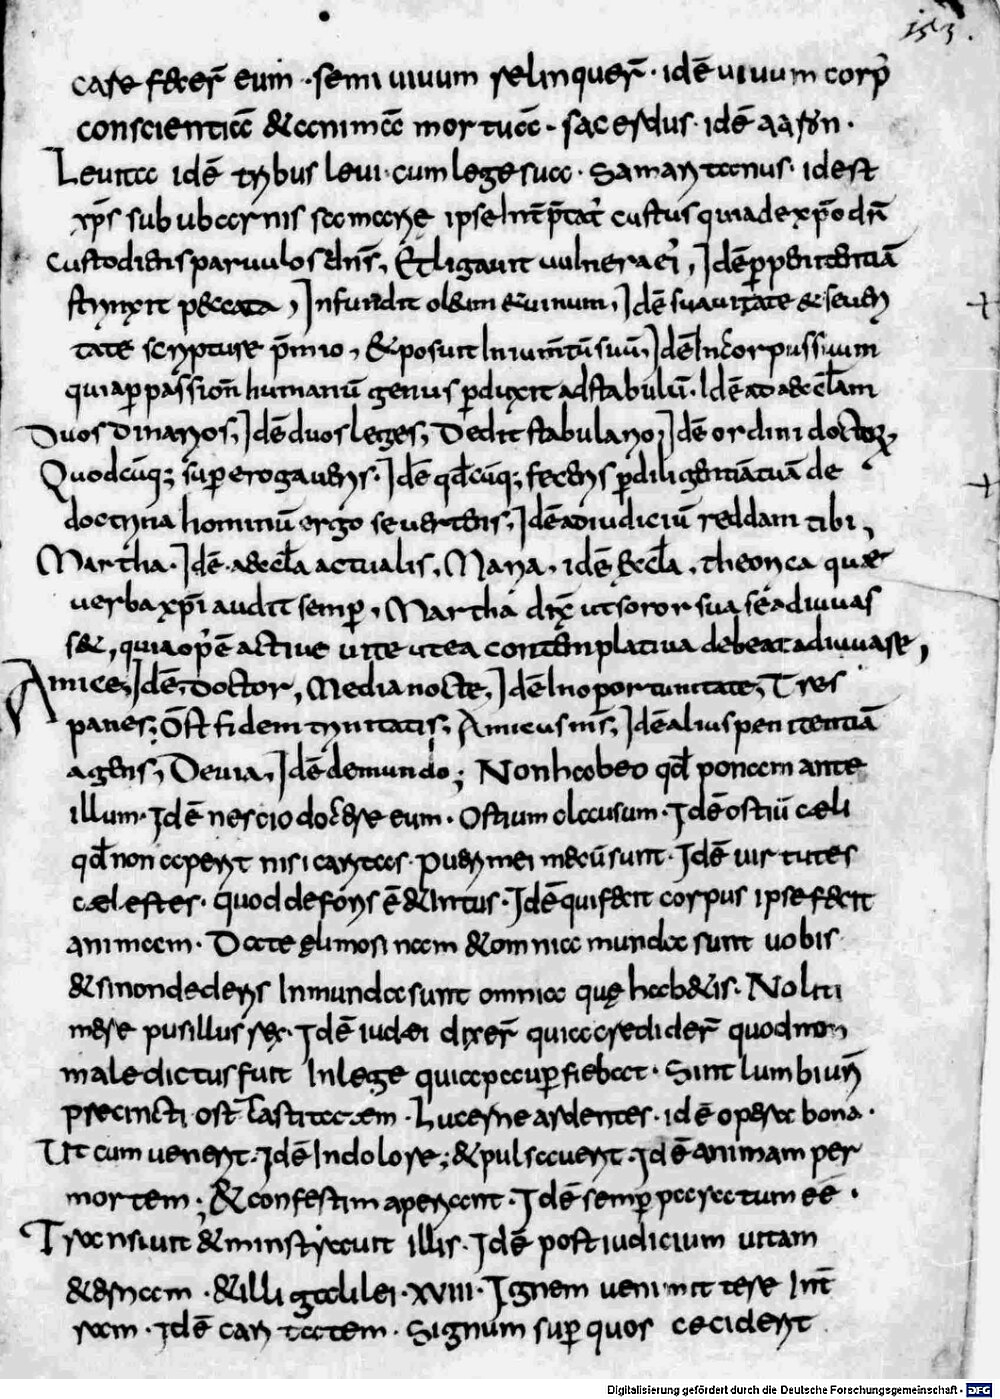 153.
care fecer̄ eum · semi uiuum relinquer̄ · idē uiuum corp̄
conscientia & anima mortua · sacerdus · idē aaron ·
Leuita idē tribus leui · cum lege sua · Samaritanus · id est
xp̄s sub ubarnis ipse int̄p̄tat̄ custus quia de xp̄o dn̄
custodiens paruulos dn̄s, Et ligauit uulnera ei, Idē p̄ penitentiā
strinxit peccata, Infundit oleum & uinum, Idē suauitate & seueri
tate scripture p̄mio, & posuit In iumtū suū, Idē In corpus suum
qui ap̄ passion̄ humanū genus p̄duxit ad stabulū · Idē ad aeccl̄am
Duos dinarios, Idē duos leges, Dedit stabulario, Idē ordini doctoꝝ,
Quodcūq; sup̄erogaueris · Idē qd̄cūq; feceris p̄ diligentiā tuā de
doctrina hominū ergo reuertens, Idē ad iudiciū reddam tibi,
Martha · Idē · aeccl̄a actualis, Maria, idē Eccl̄a, theorica quæ
uerba xp̄i audit semp̄, Martha dix̄ ut soror sua adiuuas
s&, quia op̄e actiue uite uita contemplatiua debeat adiuuare,
Amice, Idē, doctor, Media nocte, Idē In oportunitate, Tres
panes; Ost̄ fidem trinitatis, Amicus m̄s, Idē alius penitentiā
agens, De uia, Idē de mundo; Non habeo qd̄ ponam ante
illum · Idē nescio docere eum · Ostium clausum · Idē ostiū cæli
qd̄ non aperit nisi caritas · Pueri mei mecū sunt · Idē uirtutes
cælestes · quod de foris ē & intus · Idē qui fecit corpus ipse fecit
animam · Date elimosinam & omnia munda sunt uobis
& si non dederis Inmunda sunt omnia quę habetis · Noliti
mere pusillus rex · Idē iudei dixer̄ quia credider̄ quod non
maledictus fuit In lege quia pauper fiebat · Sint lumbi ur̄i
precincti ost̄ castitatem · Lucerne ardentes · idē opera bona ·
Ut cum uenerit · Idē In dolore; & pulsauerit · Idē animam per
mortem; & confestim aperiant · Idē semp̄ paratum eē ·
Transiuit & ministrauit illis · Idē post iudicium uitam
&ernam · & illi galilei · XVIII · Ignem ueni mittere In t̄
ram · Idē caritatem · Signum super quos ceciderit
Digitalisierung gefördert durch die Deutsche Forschungsgemeinschaft - DFG